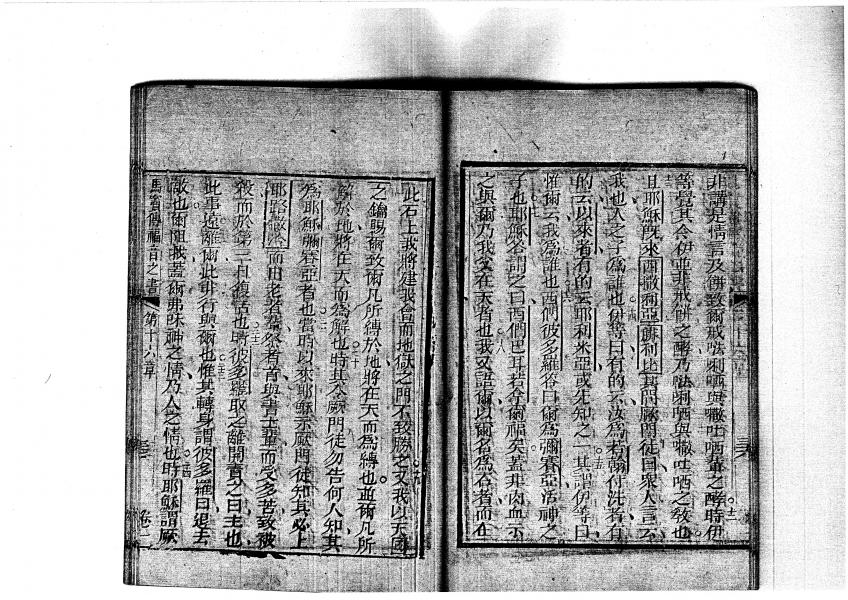 非講是情言及併致爾戒𠵽唎哂與㘔吐哂輩之酵時伊
等覺其令伊並非戒餅之酵乃𠵽唎哂與㘔吐哂之教也
且耶穌旣來西撒利亞腓利比其問厥門徒曰衆人言云
我也人之子爲誰也伊等曰有的云汝爲若翰付洗者有
的云以來者有的云耶利米亞或先知之一其謂伊等曰
惟爾云我爲誰也西們彼多羅答曰爾爲彌賽亞活神之
子也耶穌答謂之曰西們巴耳若拿爾福矣蓋非肉血示
之與爾乃我父在天者也我又語爾以爾名爲石者而在
此石上我將建我會而地獄之門不致勝之又我以天國
之鑰賜爾致爾凡所縛於地將在天而爲縛也並爾凡所
解於地將在天而爲解也時其令厥門徒勿告何人知其
爲耶穌彌賽亞者也當時以來耶穌示厥門徒知其必上
耶路撒冷而由老者鐸祭者首與書士輩而受多苦致被
殺而於第三日復活也時彼多羅取之離開責之曰主也
此事遠離爾此非行與爾也惟其轉身謂彼多羅曰退去
敵也爾阻我蓋爾弗味神之情乃人之情也時耶穌謂厥
馬竇傳福音之書
第十六章
卷一